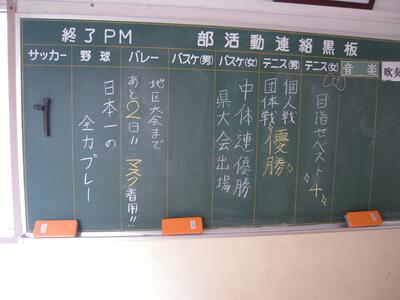 終了PM 部活動連絡黒板
サッカー 野球 バレー バスケ(男) バスケ(女) テニス(男) テニス(女) 音楽 吹奏
日本一の
全力プレー
地区大会まで
あと2日!! マスク着用!!
中体連優勝
県大会出場
個人戦
団体戦 優勝
目指せベスト4